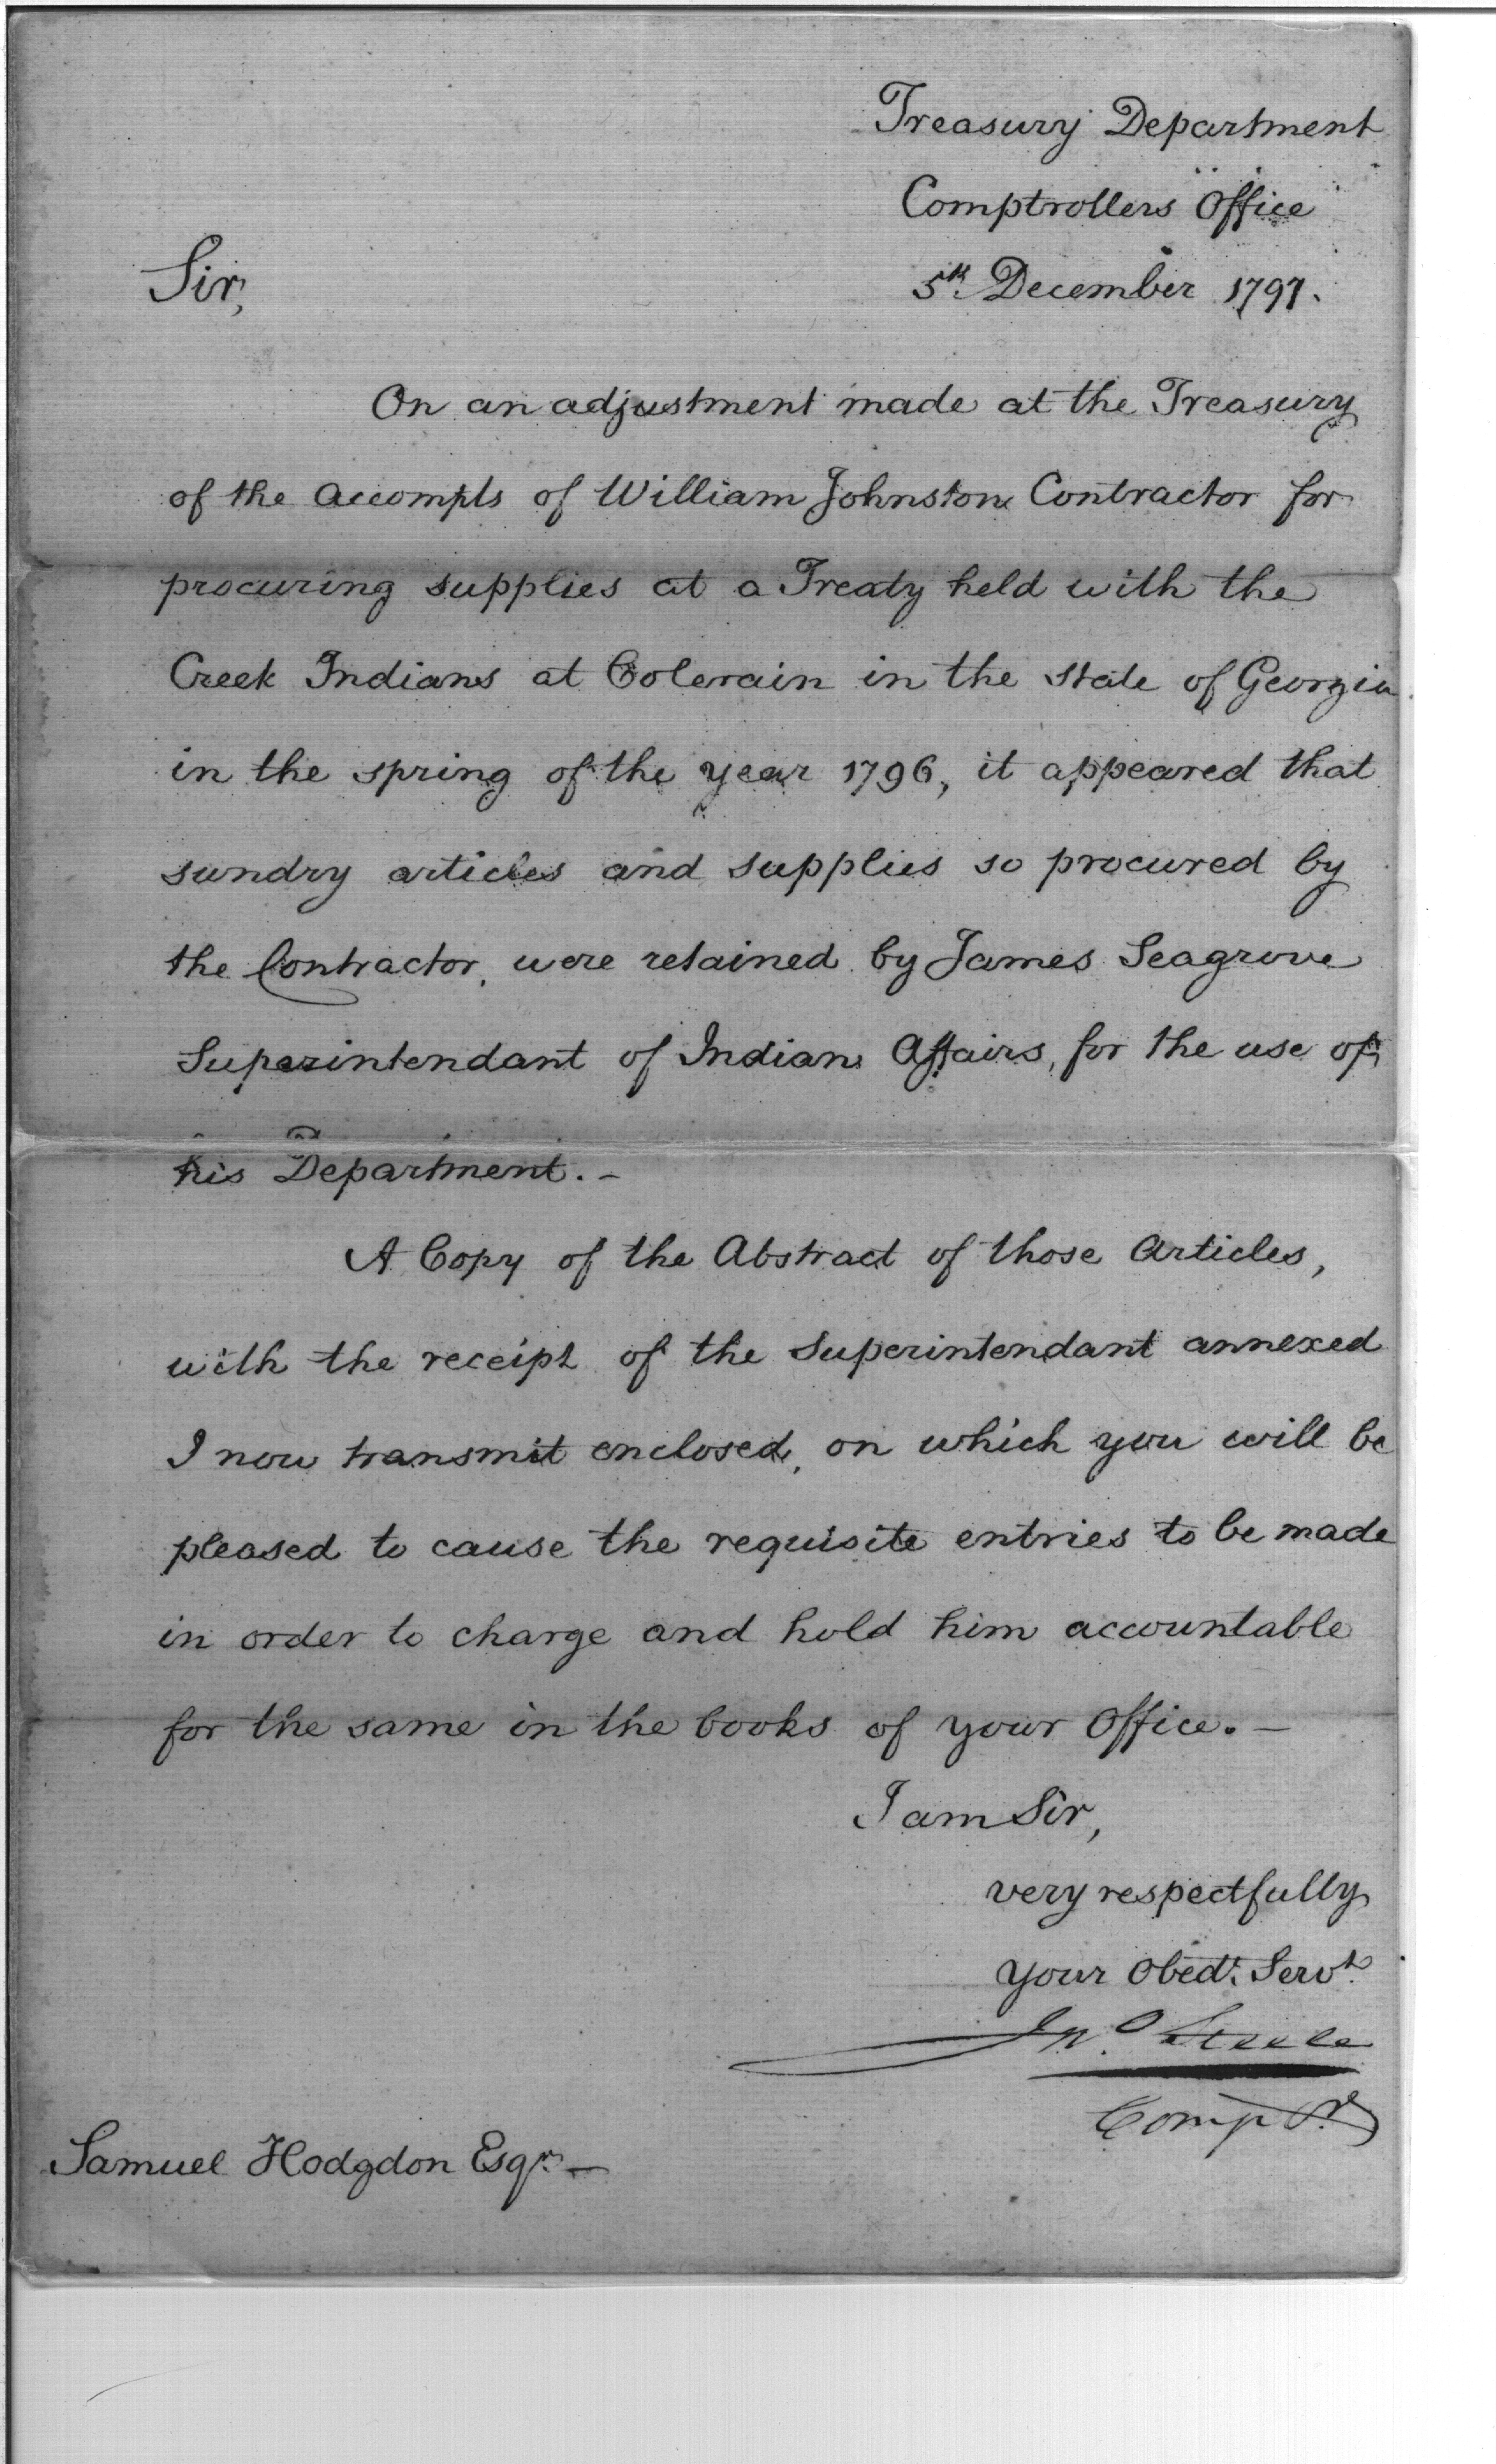 Treasury Department
Comptrollers Office
Sir, 5th December 1797.
On an adjustment made at the Treasury
of the Accompts of William Johnston Contractor for
procuring supplies at a Treaty held with the
Creek Indians at Colerain in the state of Georgia
in the spring of the year 1796, it appeared that
sundry articles and supplies so procured by
the Contractor, were retained by James Seagrove
Superintendant of Indian Affairs, for the use of
his Department. -
A Copy of the Abstract of those Articles,
with the receipt of the Superintendant annexed
I now transmit enclosed, on which you will be
pleased to cause the requisite entries to be made
in order to charge and hold him accountable
for the same in the books of your Office. -
I am Sir,
very respectfully
your Obedt. Servt.
Jno. Steele
Compr.
Samuel Hodgdon Esqr. -